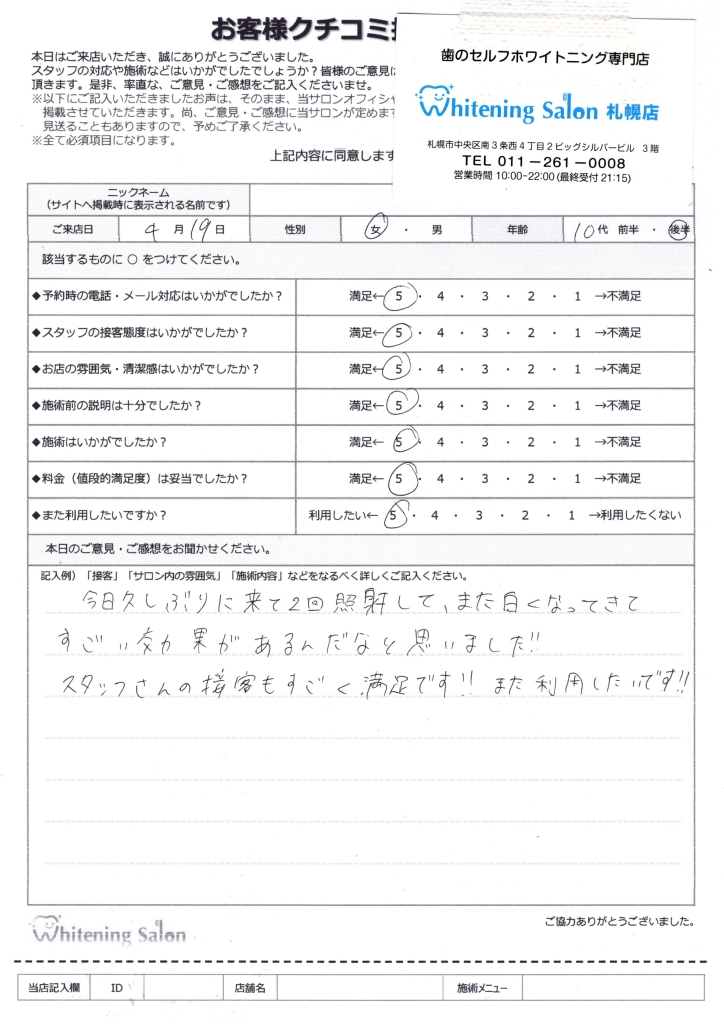 お客様クチコミ
本日はご来店いただき、誠にありがとうございました。
スタッフの対応や施術などはいかがでしたでしょうか？皆様のご意見は
頂きます。是非、率直な、ご意見・ご感想をご記入くださいませ。
※以下にご記入いただきましたお声は、そのまま、当サロンオフィシャ
掲載させていただきます。尚、ご意見・ご感想に当サロンが定めます
見送ることもありますので、予めご了承ください。
※全て必須項目になります。
上記内容に同意します
歯のセルフホワイトニング専門店
Whitening Salon 札幌店
札幌市中央区南３条西４丁目２ビッグシルバービル　３階
TEL 011－261－0008
営業時間 10:00-22:00 (最終受付 21:15)
ニックネーム
（サイトへ掲載時に表示される名前です）
ご来店日 4 月 19 日 性別 女 ・ 男 年齢 10 代 前半 ・ 後半
該当するものに ○ をつけてください。
◆予約時の電話・メール対応はいかがでしたか？ 満足← 5 ・ 4 ・ 3 ・ 2 ・ 1 →不満足
◆スタッフの接客態度はいかがでしたか？ 満足← 5 ・ 4 ・ 3 ・ 2 ・ 1 →不満足
◆お店の雰囲気・清潔感はいかがでしたか？ 満足← 5 ・ 4 ・ 3 ・ 2 ・ 1 →不満足
◆施術前の説明は十分でしたか？ 満足← 5 ・ 4 ・ 3 ・ 2 ・ 1 →不満足
◆施術はいかがでしたか？ 満足← 5 ・ 4 ・ 3 ・ 2 ・ 1 →不満足
◆料金（値段的満足度）は妥当でしたか？ 満足← 5 ・ 4 ・ 3 ・ 2 ・ 1 →不満足
◆また利用したいですか？ 利用したい← 5 ・ 4 ・ 3 ・ 2 ・ 1 →利用したくない
本日のご意見・ご感想をお聞かせください。
記入例）「接客」「サロン内の雰囲気」「施術内容」などをなるべく詳しくご記入ください。
今日久しぶりに来て2回照射して、また白くなってきて
すごい効果があるんだなと思いました!!
スタッフさんの接客もすごく満足です!! また利用したいです!!
Whitening Salon
ご協力ありがとうございました。
当店記入欄 ID 店舗名 施術メニュー